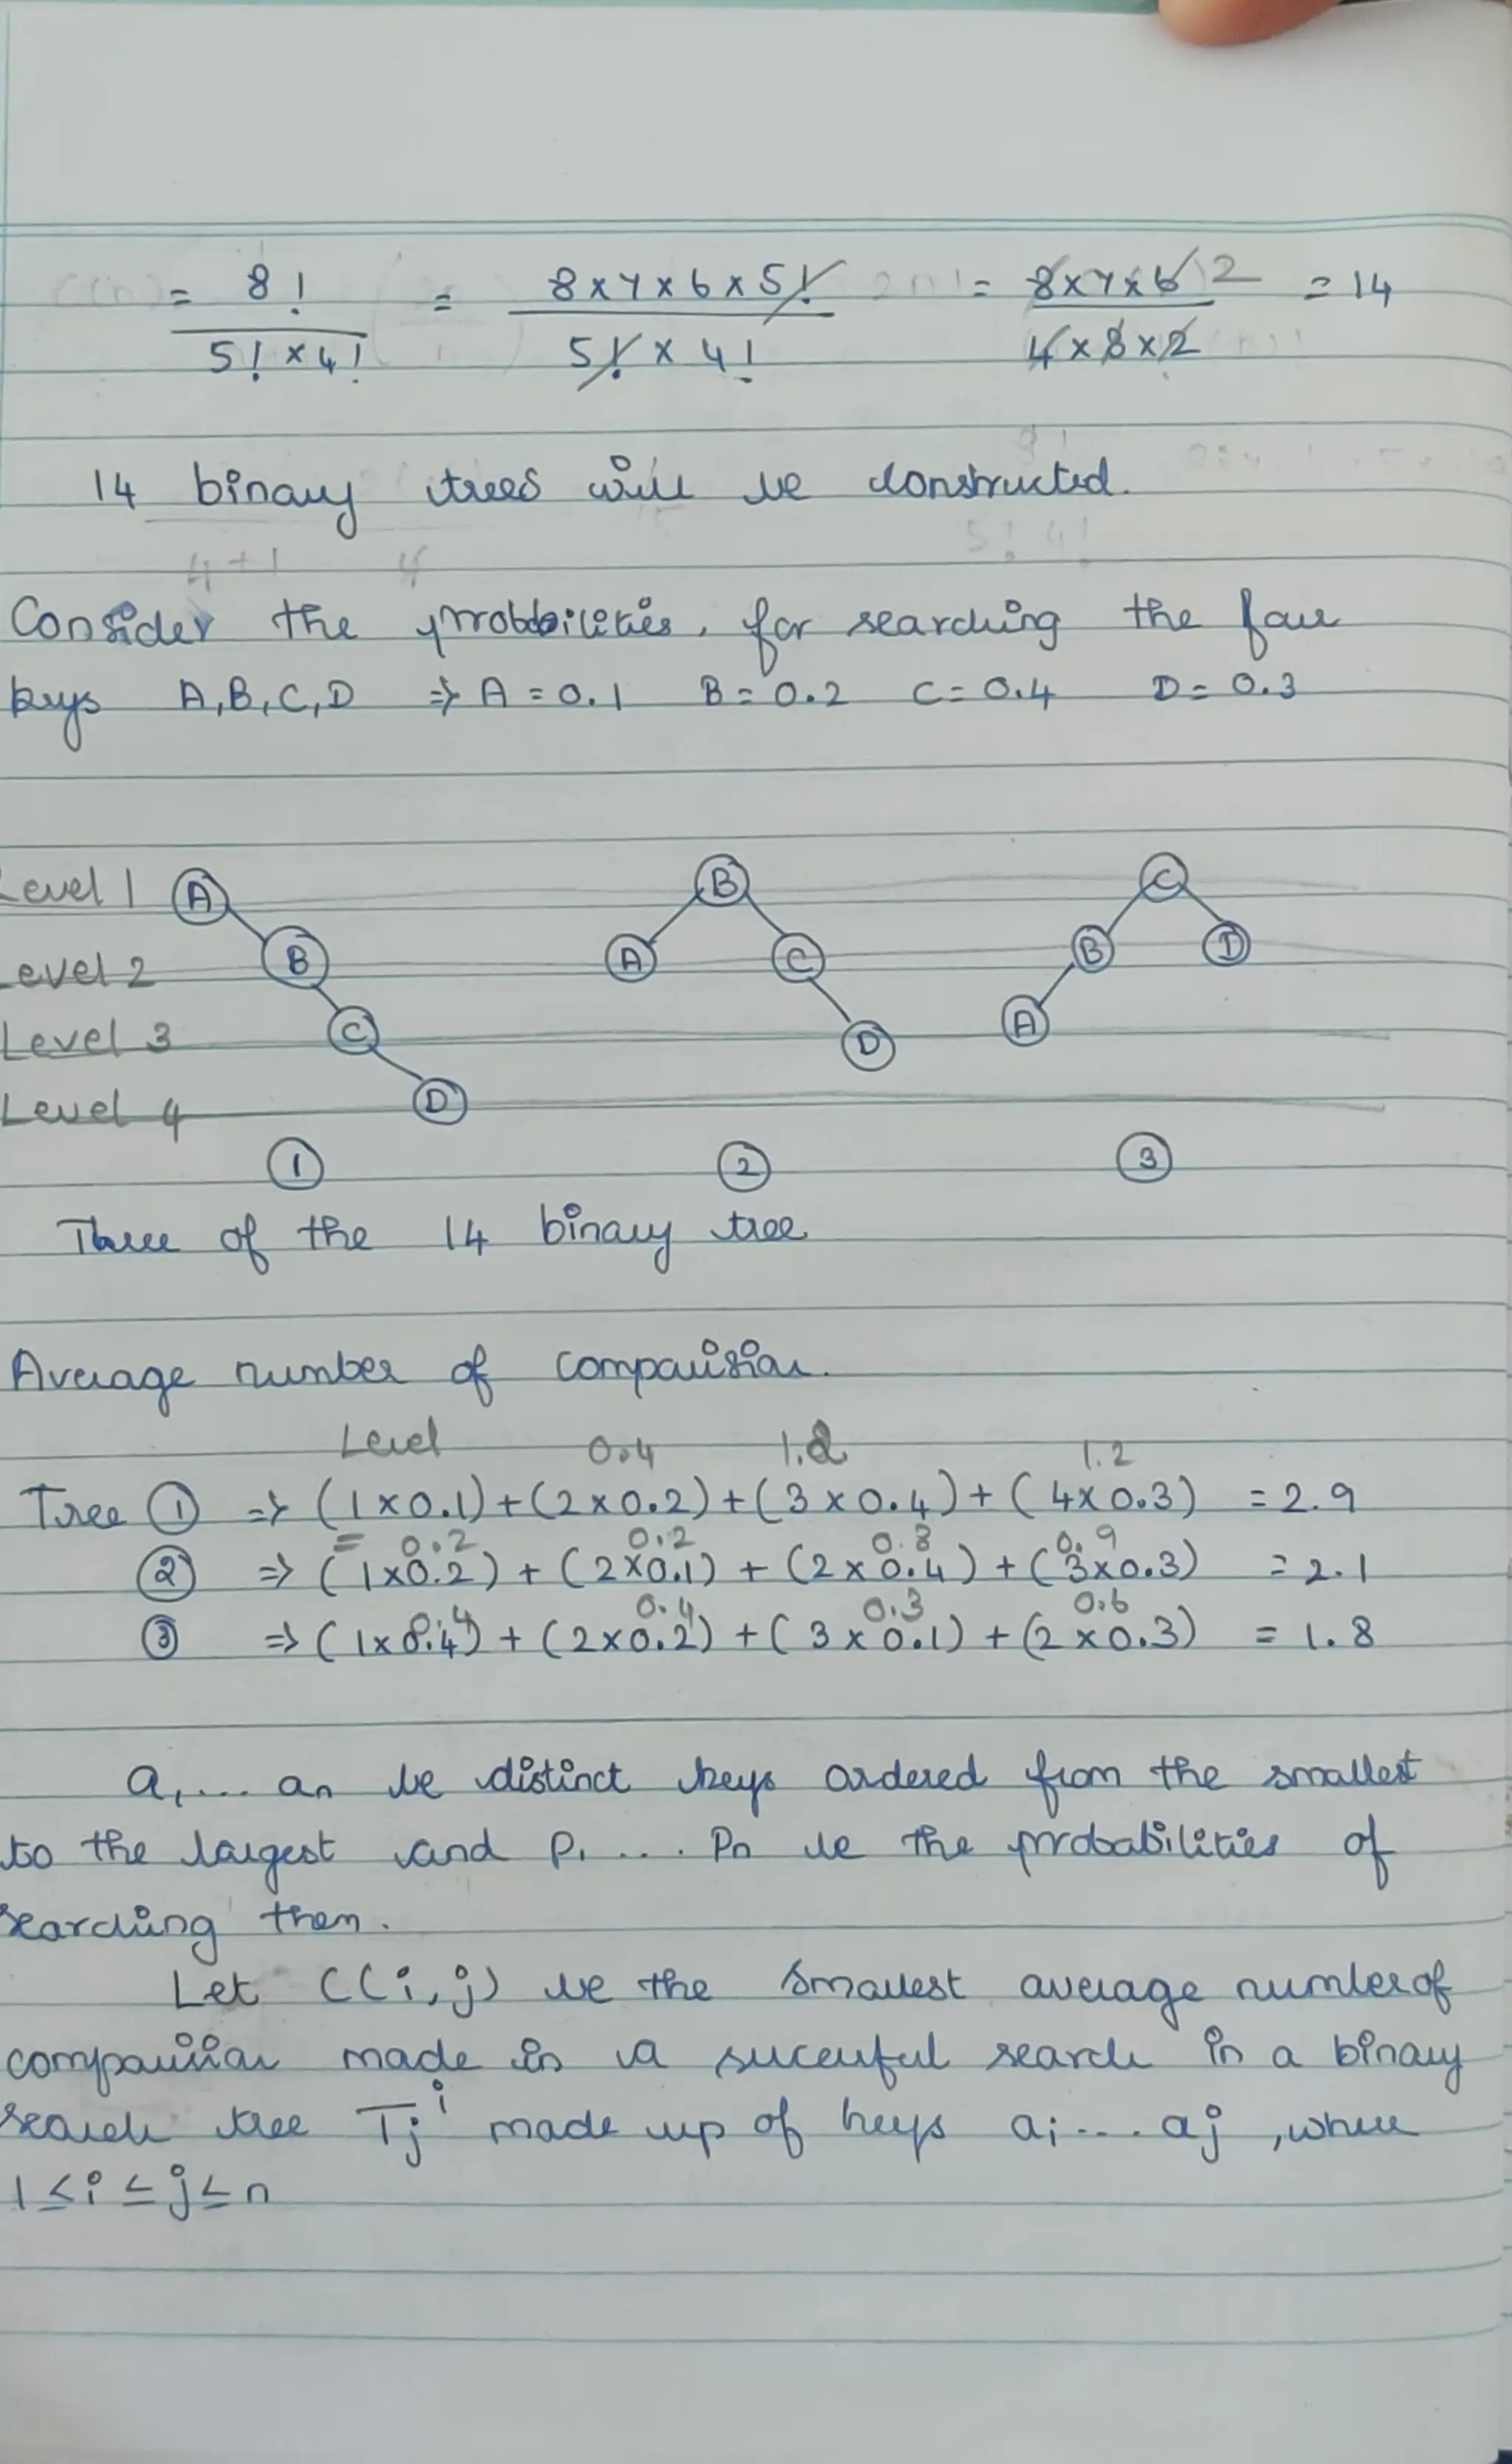 = 8! / 5! × 4! = 8×7×6×5! / 5! × 4! = 8×7×6 2 / 4×3×2 = 14
14 binary trees will be constructed.
Consider the probabilities, for searching the four
keys A,B,C,D ⇒ A = 0.1 B = 0.2 C = 0.4 D = 0.3
Level 1 A B C
Level 2 B A C B D
Level 3 C D A
Level 4 D
1 2 3
Three of the 14 binary tree
Average number of comparision.
Level 0.4 1.2 1.2
Tree ① ⇒ (1×0.1)+(2×0.2)+(3×0.4)+(4×0.3) = 2.9
0.2 0.2 0.8 0.9
② ⇒ (1×0.2) + (2×0.1) + (2×0.4) + (3×0.3) = 2.1
0.4 0.4 0.3 0.6
③ ⇒ (1×0.4) + (2×0.2) + (3×0.1) + (2×0.3) = 1.8
a1.... an be distinct keys ordered from the smallest
to the largest and P1 .... Pn be the probabilities of
searching them.
Let C(i,j) be the smallest average number of
comparision made in a sucessful search in a binary
search tree Tj^i made up of keys ai.... aj ,where
1≤i≤j≤n